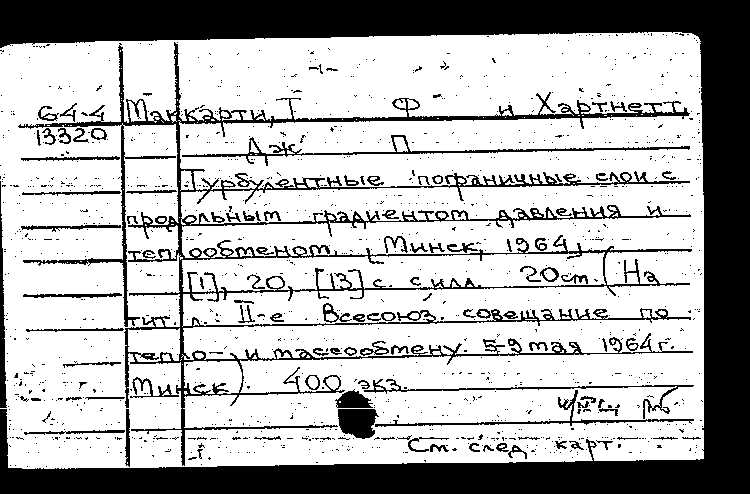 -1-
64-4 Маккарти, Т Ф и Хартнетт,
13320
Дж П
Турбулентные пограничные слои с
продольным градиентом давления и
теплообменом. [Минск, 1964]
[1], 20, [13] с. с илл. 20 см. (На
тит. л.: II-е Всесоюз. совещание по
тепло- и массообмену. 5-9 мая 1964 г.
Минск). 400 экз.
См. след. карт.